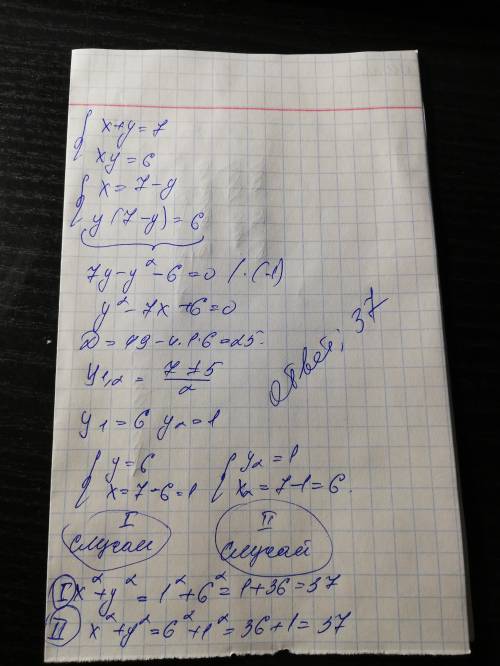 x+y=7
xy=6
x=7-y
y(7-y)=6
7y-y²-6=0 |·(-1)
y²-7x+6=0
D=49-4·1·6=25.
y₁,₂ = (7±5)/2
y₁=6 y₂=1
Ответ: 37
y=6
x=7-6=1
y₂=1
x₂=7-1=6.
I
случай
II
случай
I x²+y²=1²+6²=1+36=37
II x²+y²=6²+1²=36+1=37